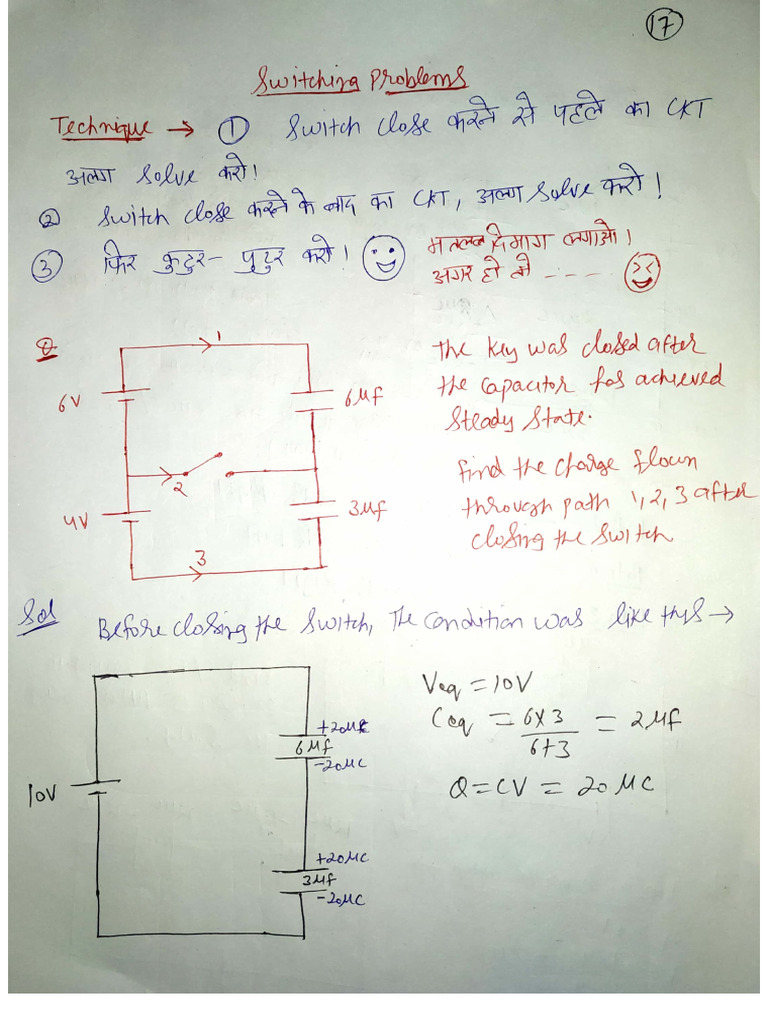 17
Switching Problems
Technique → ① Switch close करने से पहले का CKT
अलग solve करो!
② Switch close करने के बाद का CKT, अलग solve करो!
③ फिर कुटुर-पुटुर करो!
मतलब दिमाग लगाओ!
अगर हो तो ----
Q
1
6V
6μf
2
4V
3μf
3
The key was closed after
the capacitor has achieved
Steady State.
find the charge flown
through path 1, 2, 3 after
closing the switch
Sol Before closing the switch, The condition was like this →
10V
+20μc
6μf
-20μc
+20μc
3μf
-20μc
Veq = 10V
Ceq = 6x3 / 6+3 = 2μf
Q = CV = 20μc